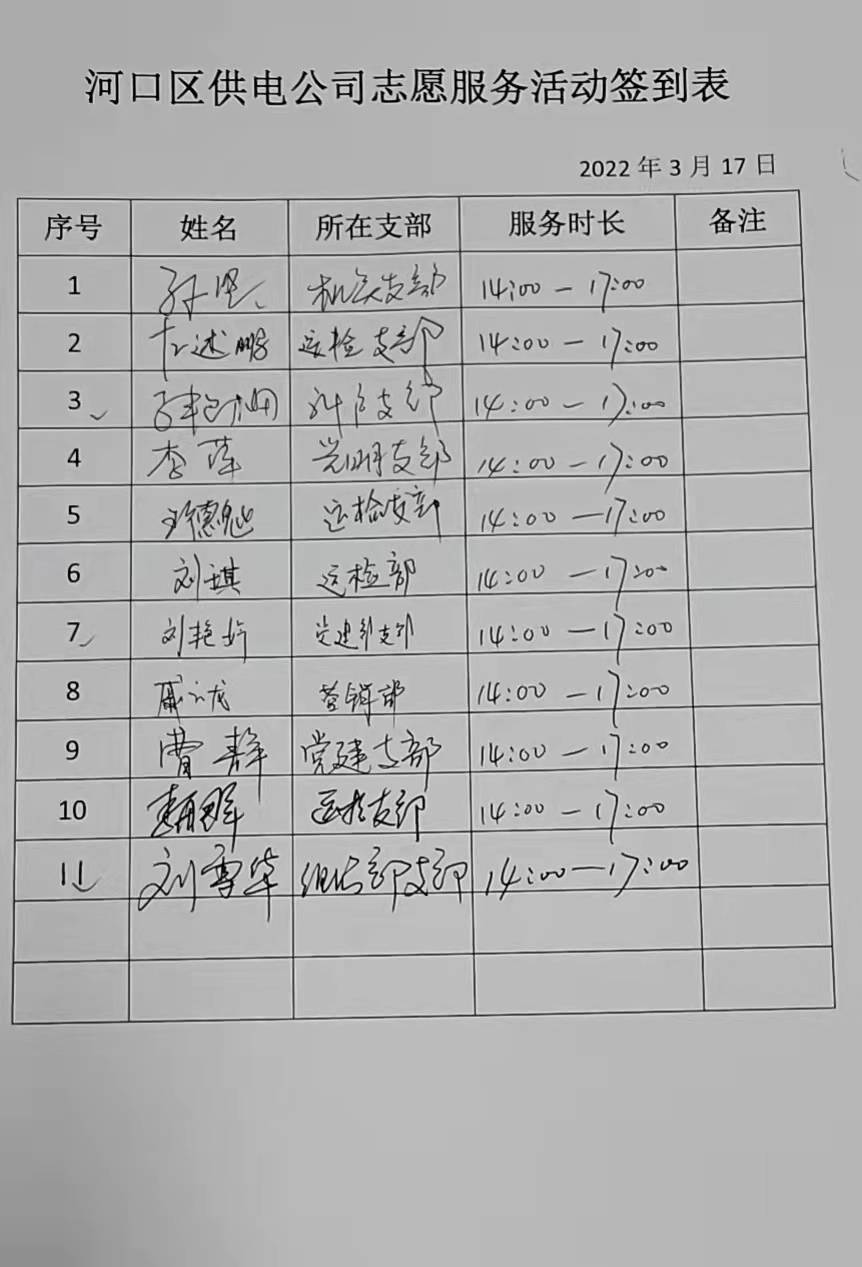 河口区供电公司志愿服务活动签到表
2022 年 3 月 17 日
序号 姓名 所在支部 服务时长 备注
1 机关支部 14:00 — 17:00
2 述鹏 运检支部 14:00 — 17:00
3 支部 14:00 — 17:00
4 李萍 光明支部 14:00 — 17:00
5 德 运检支部 14:00 — 17:00
6 刘琪 运检部 14:00 — 17:00
7 刘艳娇 党建部支部 14:00 — 17:00
8 营销部 14:00 — 17:00
9 曹静 党建支部 14:00 — 17:00
10 运检支部 14:00 — 17:00
11 刘雪华 组织部支部 14:00 — 17:00